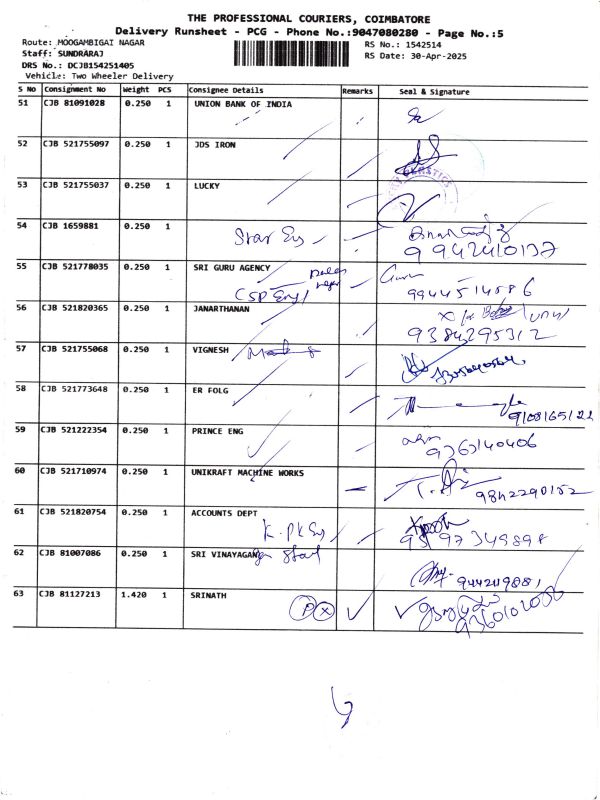 THE PROFESSIONAL COURIERS, COIMBATORE
Delivery Runsheet - PCG - Phone No.:9047080280 - Page No.:5
Route: MOOGAMBIGAI NAGAR
Staff: SUNDRARAJ
DRS No.: DCJB154251405
Vehicle: Two Wheeler Delivery
RS No.: 1542514
RS Date: 30-Apr-2025
S No Consignment No Weight PCS Consignee Details Remarks Seal & Signature
51 CJB 81091028 0.250 1 UNION BANK OF INDIA
52 CJB 521755097 0.250 1 JDS IRON
53 CJB 521755037 0.250 1 LUCKY
54 CJB 1659881 0.250 1
Star Eng
9942410137
55 CJB 521778035 0.250 1 SRI GURU AGENCY
(CSP Eng)
9944514586
56 CJB 521820365 0.250 1 JANARTHANAN
9384295312
57 CJB 521755068 0.250 1 VIGNESH
58 CJB 521773648 0.250 1 ER FOLG
9108165122
59 CJB 521222354 0.250 1 PRINCE ENG
9363140406
60 CJB 521710974 0.250 1 UNIKRAFT MACHINE WORKS
9842290152
61 CJB 521820754 0.250 1 ACCOUNTS DEPT
K.PK Eng
9597349898
62 CJB 81007086 0.250 1 SRI VINAYAGAN
63 CJB 81127213 1.420 1 SRINATH
P X